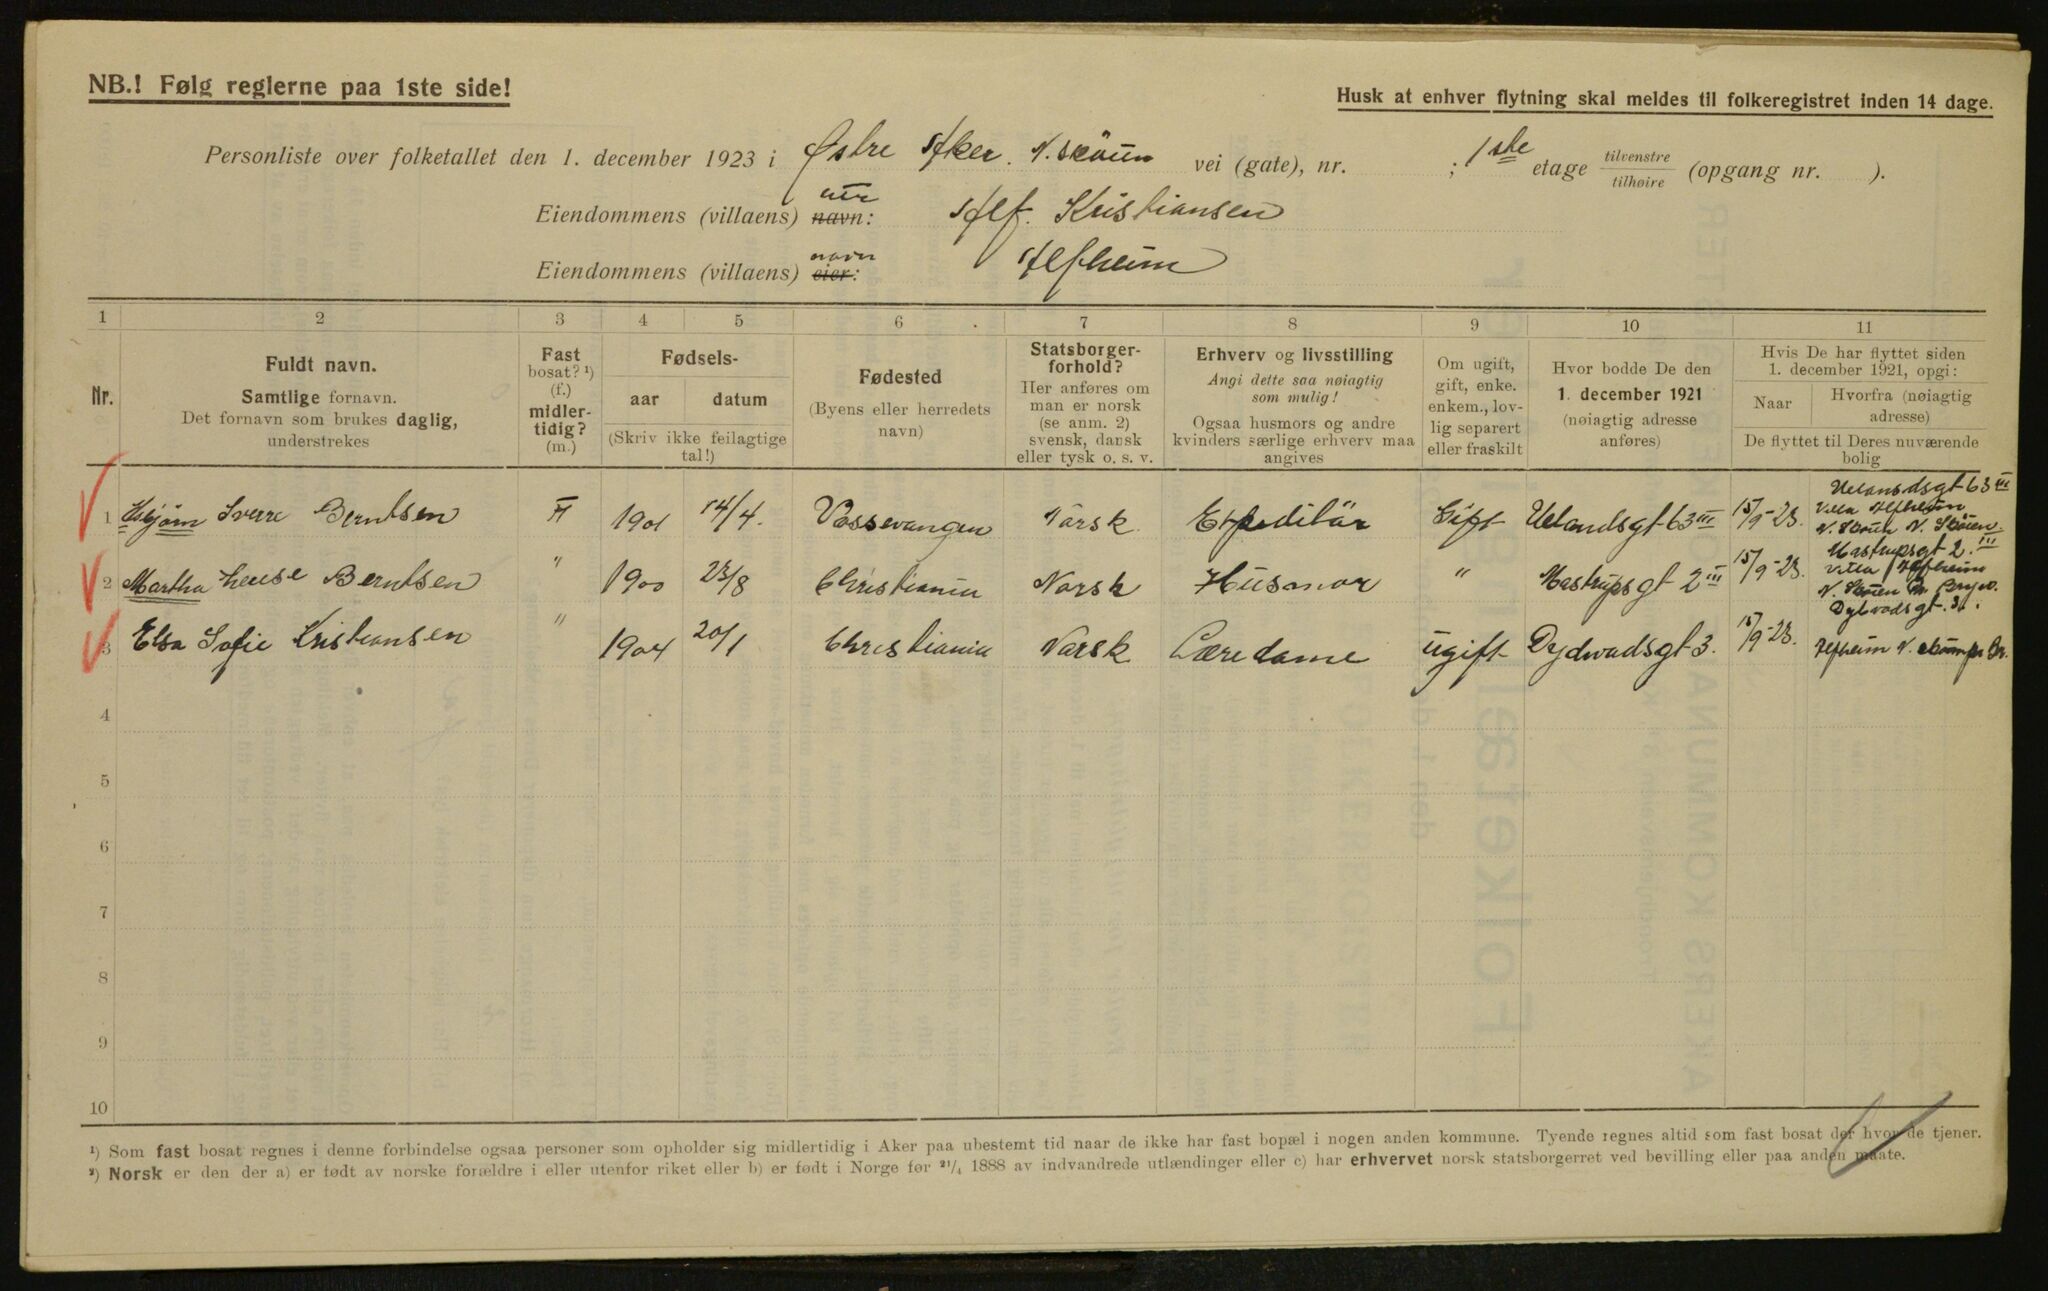 NB.! Følg reglerne paa 1ste side!
Husk at enhver flytning skal meldes til folkeregistret inden 14 dage.
Personliste over folketallet den 1. december 1923 i Østre Aker. N. Sköien vei (gate), nr. ; 1ste etage tilvenstre tilhøire (opgang nr. ).
eier
Eiendommens (villaens) navn: Alf. Kristiansen
navn
Eiendommens (villaens) eier: Alfheim
1 2 3 4 5 6 7 8 9 10 11
Nr.
Fuldt navn.
Samtlige fornavn.
Det fornavn som brukes daglig,
understrekes
Fast
bosat? ¹)
(f.)
midler-
tidig?
(m.)
Fødsels-
aar datum
(Skriv ikke feilagtige
tal!)
Fødested
(Byens eller herredets
navn)
Statsborger-
forhold?
Her anføres om
man er norsk
(se anm. 2)
svensk, dansk
eller tysk o. s. v.
Erhverv og livsstilling
Angi dette saa nøiagtig
som mulig!
Ogsaa husmors og andre
kvinders særlige erhverv maa
angives
Om ugift,
gift, enke.
enkem., lov-
lig separert
eller fraskilt
Hvor bodde De den
1. december 1921
(nøiagtig adresse
anføres)
Hvis De har flyttet siden
1. december 1921, opgi:
Naar
Hvorfra (nøiagtig
adresse)
De flyttet til Deres nuværende
bolig
1 Sverre Berntsen F 1901 14/4. Vossevangen Norsk Expeditör Gift Uelandsgt 63 III 15/9-23. Uelansdsgt 63 III
Villa Alfheim
N. Skoien
2 Martha Berntsen " 1900 23/8 Christiania Norsk Husmor " Mastrupsgt 2 III 15/9-23. Mastrupsgt 2. III
Villa Alfheim
N. Skoien pr Bryn.
3 Elsa Sofie Kristiansen " 1904 20/1 Christiania Norsk Læredame ugift Dydvadsgt 3. 15/9-23. Dybvadsgt. 3.
Alfheim N. Skoien pr Br.
4
5
6
7
8
9
10
¹) Som fast bosat regnes i denne forbindelse ogsaa personer som opholder sig midlertidig i Aker paa ubestemt tid naar de ikke har fast bopæl i nogen anden kommune. Tyende regnes altid som fast bosat der hvor de tjener.
²) Norsk er den der a) er født av norske forældre i eller utenfor riket eller b) er født i Norge før ²¹/₄ 1888 av indvandrede utlændinger eller c) har erhvervet norsk statsborgerret ved bevilling eller paa anden maate.